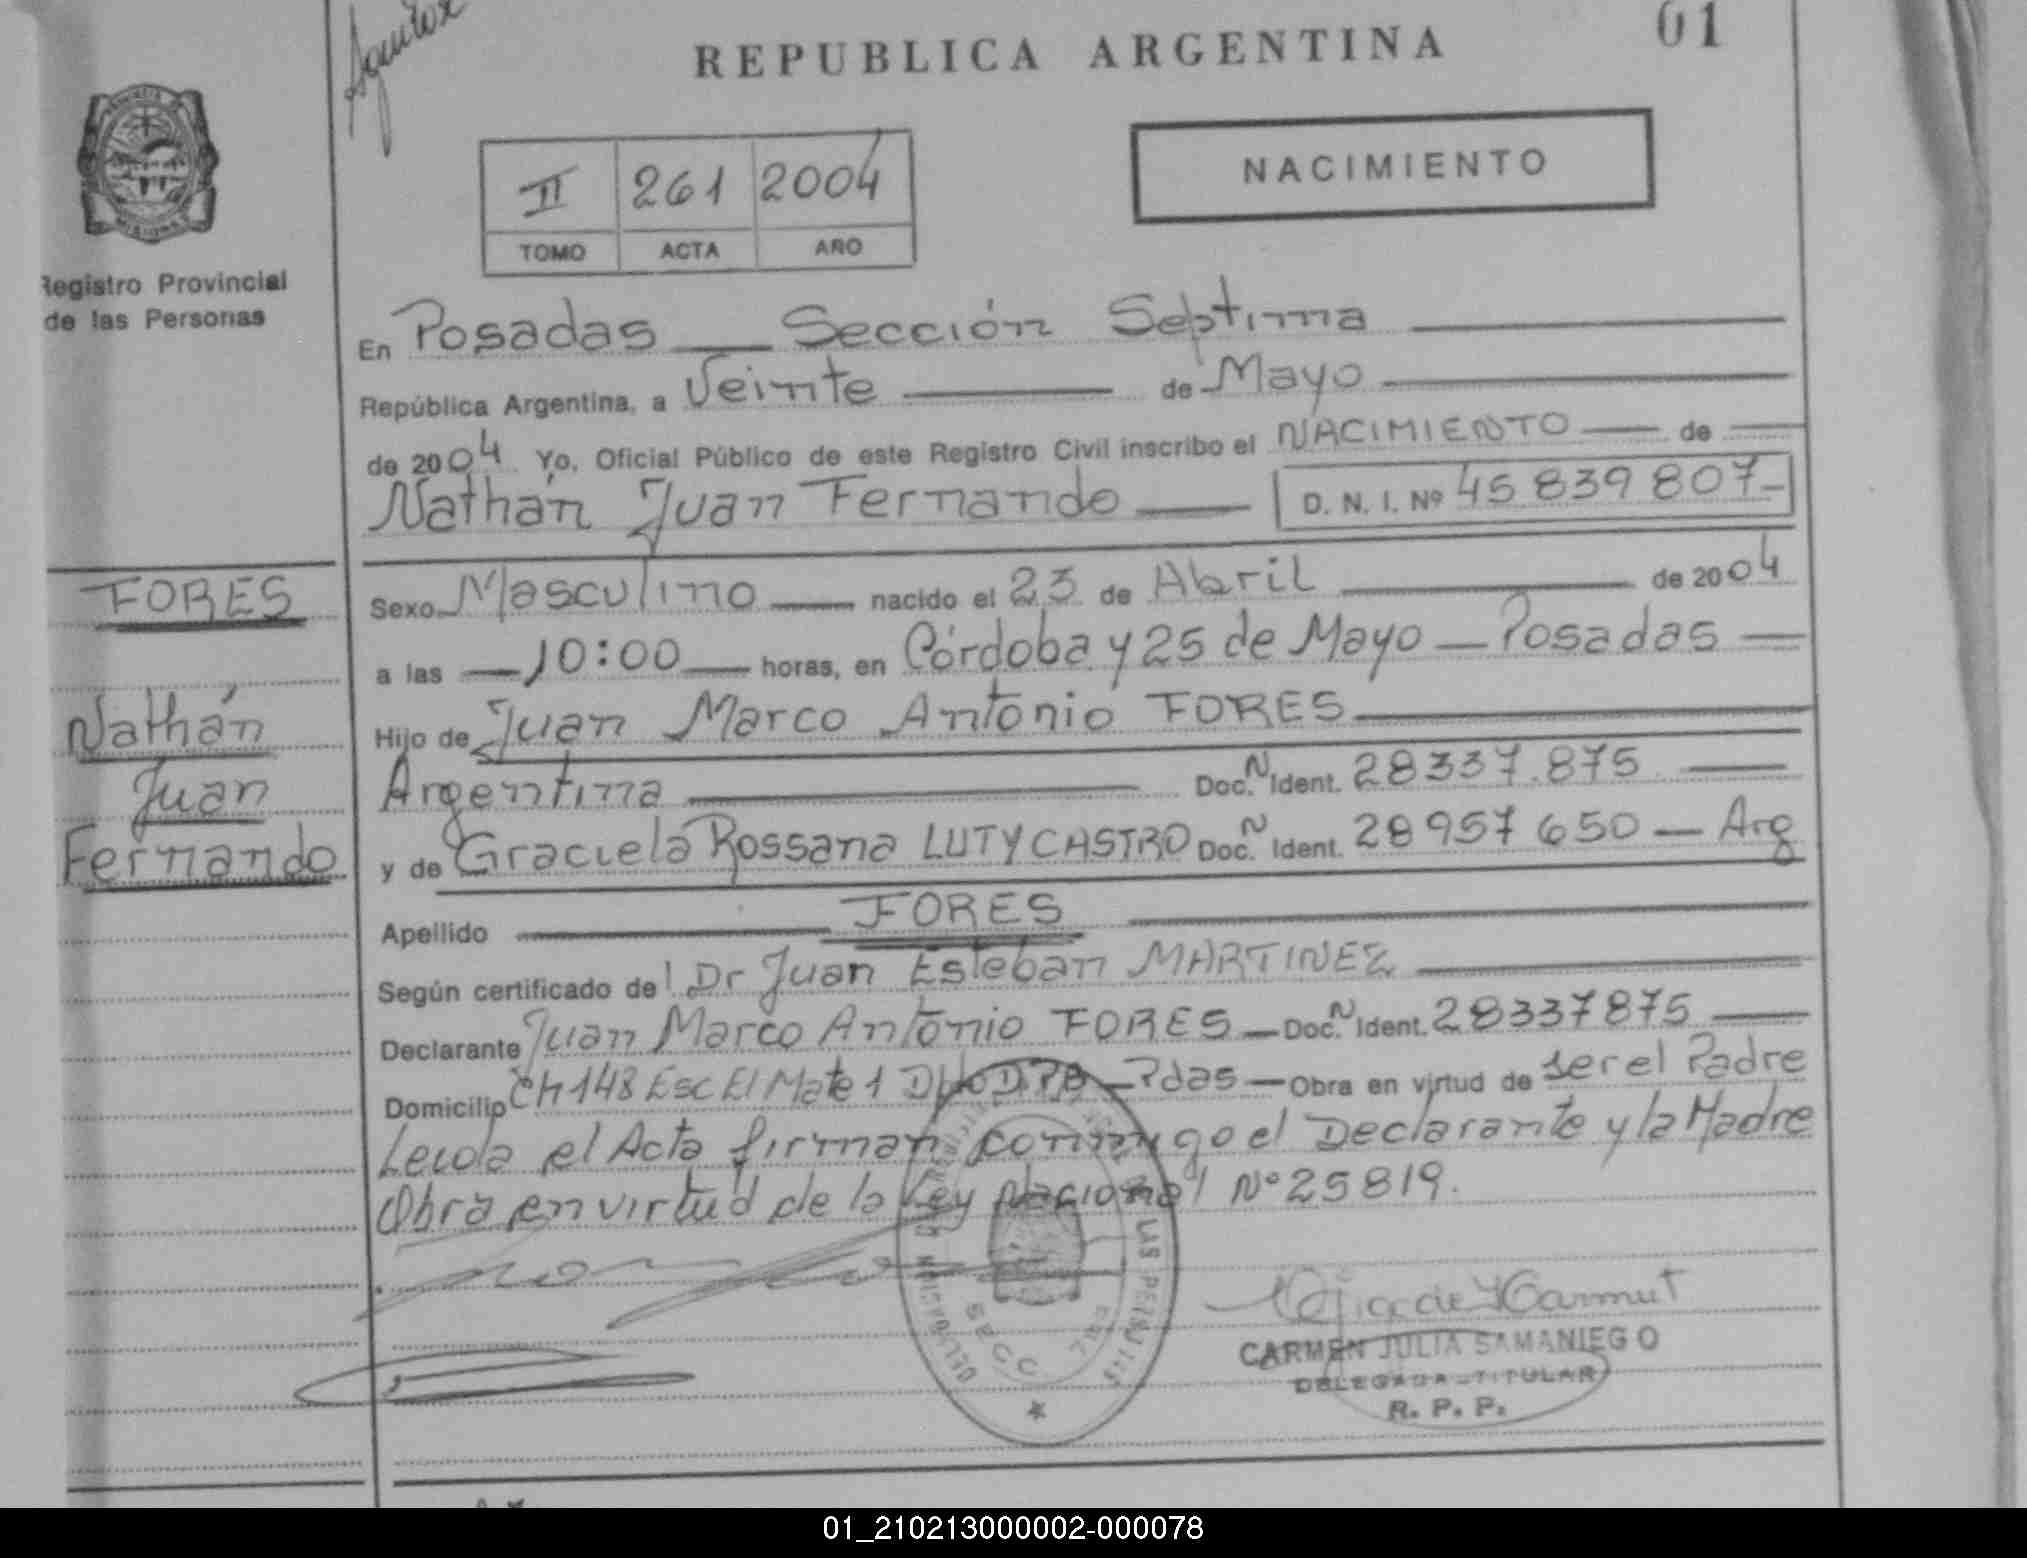 REPUBLICA ARGENTINA
01
II 261 2004
TOMO ACTA AÑO
NACIMIENTO
Registro Provincial
de las Personas
En Posadas — Sección Septima
República Argentina, a Veinte de Mayo
de 2004 Yo, Oficial Público de este Registro Civil inscribo el NACIMIENTO de
Nathán Juan Fernando D. N. I. Nº 45 839 807
FORES
Nathán
Juan
Fernando
Sexo Masculino nacido el 23 de Abril de 2004
a las 10:00 horas, en Córdoba y 25 de Mayo — Posadas
Hijo de Juan Marco Antonio FORES
Argentina Doc. N Ident. 28337.875
y de Graciela Rossana LUTY CASTRO Doc. N Ident. 28 957 650 — Arg
Apellido FORES
Según certificado del Dr Juan Esteban MARTINEZ
Declarante Juan Marco Antonio FORES — Doc. N Ident. 28337875
Domicilio Ch 148 Esc El Mate 1 — Pdas — Obra en virtud de ser el Padre
Leida el Acta firman conmigo el Declarante y la Madre
Obra en virtud de la Ley Nacional Nº 25819.
LAS PERSONAS
SECC
CARMEN JULIA SAMANIEGO
DELEGADA TITULAR
R. P. P.
01_210213000002-000078